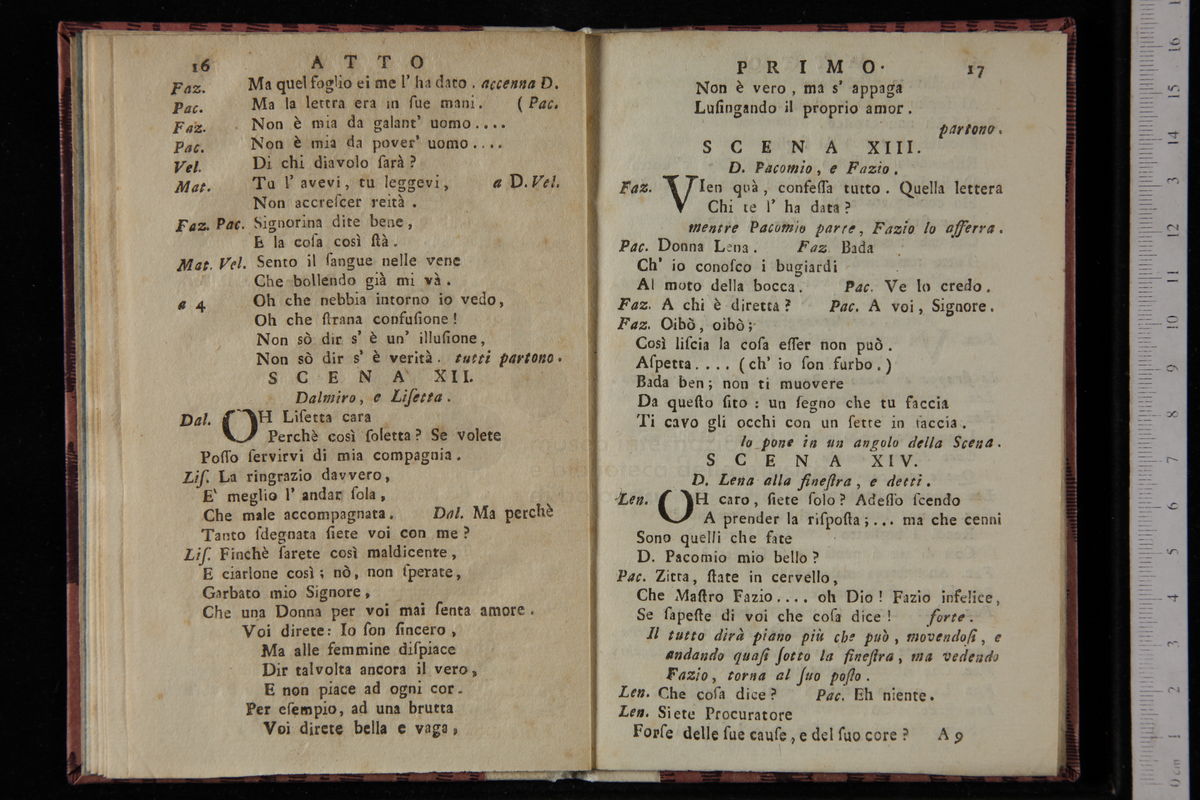 16 ATTO
Faz. Ma quel foglio ei me l' ha dato . accenna D.
Pac. Ma la lettra era in ſue mani. ( Pac.
Faz. Non è mia da galant' uomo ....
Pac. Non è mia da pover' uomo ....
Vel. Di chi diavolo ſarà ?
Mat. Tu l' avevi, tu leggevi, a D. Vel.
Non accreſcer reità .
Faz. Pac. Signorina dite bene,
E la coſa così ſtà .
Mat. Vel. Sento il ſangue nelle vene
Che bollendo già mi và .
a 4 Oh che nebbia intorno io vedo,
Oh che ſtrana confuſione !
Non sò dir s' è un' illuſione,
Non sò dir s' è verità. tutti partono.
SCENA XII.
Dalmiro, e Liſetta .
Dal. OH Liſetta cara
Perchè così ſoletta ? Se volete
Poſſo ſervirvi di mia compagnia .
Liſ. La ringrazio davvero,
E' meglio l' andar ſola,
Che male accompagnata. Dal. Ma perchè
Tanto ſdegnata ſiete voi con me ?
Liſ. Finchè ſarete così maldicente,
E ciarlone così ; nò, non ſperate,
Garbato mio Signore,
Che una Donna per voi mai ſenta amore.
Voi direte: Io ſon ſincero,
Ma alle femmine diſpiace
Dir talvolta ancora il vero,
E non piace ad ogni cor.
Per eſempio, ad una brutta
Voi direte bella e vaga,
PRIMO. 17
Non è vero, ma s' appaga
Luſingando il proprio amor.
partono.
SCENA XIII.
D. Pacomio, e Fazio.
Faz. VIen quà, confeſſa tutto. Quella lettera
Chi te l' ha data ?
mentre Pacomio parte, Fazio lo afferra.
Pac. Donna Lena. Faz. Bada
Ch' io conoſco i bugiardi
Al moto della bocca. Pac. Ve lo credo.
Faz. A chi è diretta ? Pac. A voi, Signore.
Faz. Oibò, oibò ;
Così liſcia la coſa eſſer non può.
Aſpetta.... ( ch' io ſon furbo. )
Bada ben ; non ti muovere
Da queſto ſito : un ſegno che tu faccia
Ti cavo gli occhi con un ſette in taccia.
lo pone in un angolo della Scena.
SCENA XIV.
D. Lena alla fineſtra, e detti.
Len. OH caro, ſiete ſolo ? Adeſſo ſcendo
A prender la riſpoſta ;... ma che cenni
Sono quelli che fate
D. Pacomio mio bello ?
Pac. Zitta, ſtate in cervello,
Che Maſtro Fazio.... oh Dio ! Fazio infelice,
Se ſapeſte di voi che coſa dice ! forte.
Il tutto dirà piano più che può, movendoſi, e
andando quaſi ſotto la fineſtra, ma vedendo
Fazio, torna al ſuo poſto.
Len. Che coſa dice ? Pac. Eh niente.
Len. Siete Procuratore
Forſe delle ſue cauſe, e del ſuo core ? A 9
0 cm 1 2 3 4 5 6 7 8 9 10 11 12 13 14 15 16